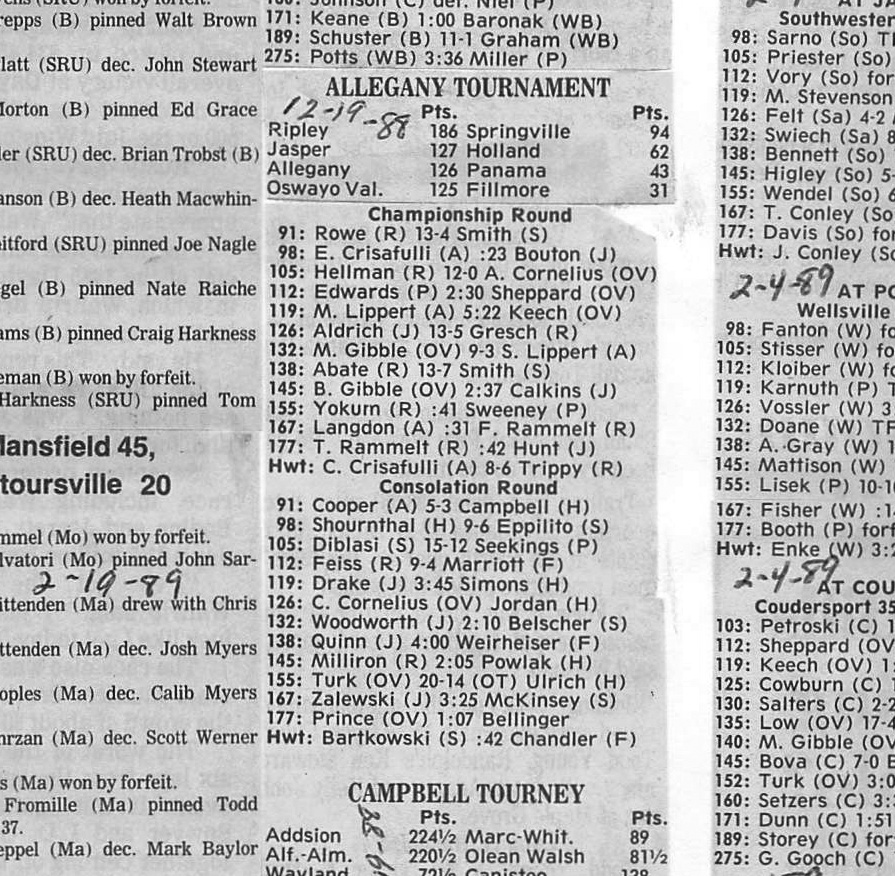 repps (B) pinned Walt Brown
latt (SRU) dec. John Stewart
orton (B) pinned Ed Grace
ler (SRU) dec. Brian Trobst (B)
anson (B) dec. Heath Macwhin-
itford (SRU) pinned Joe Nagle
gel (B) pinned Nate Raiche
ams (B) pinned Craig Harkness
eman (B) won by forfeit.
Harkness (SRU) pinned Tom
ansfield 45,
toursville 20
mmel (Mo) won by forfeit.
lvatori (Mo) pinned John Sar-
2-19-89
ittenden (Ma) drew with Chris
ttenden (Ma) dec. Josh Myers
oples (Ma) dec. Calib Myers
hrzan (Ma) dec. Scott Werner
s (Ma) won by forfeit.
Fromille (Ma) pinned Todd
37.
eppel (Ma) dec. Mark Baylor
171: Keane (B) 1:00 Baronak (WB)
189: Schuster (B) 11-1 Graham (WB)
275: Potts (WB) 3:36 Miller (P)
ALLEGANY TOURNAMENT
12-19-88
Pts. Pts.
Ripley 186 Springville 94
Jasper 127 Holland 62
Allegany 126 Panama 43
Oswayo Val. 125 Fillmore 31
Championship Round
91: Rowe (R) 13-4 Smith (S)
98: E. Crisafulli (A) :23 Bouton (J)
105: Hellman (R) 12-0 A. Cornelius (OV)
112: Edwards (P) 2:30 Sheppard (OV)
119: M. Lippert (A) 5:22 Keech (OV)
126: Aldrich (J) 13-5 Gresch (R)
132: M. Gibble (OV) 9-3 S. Lippert (A)
138: Abate (R) 13-7 Smith (S)
145: B. Gibble (OV) 2:37 Calkins (J)
155: Yokum (R) :41 Sweeney (P)
167: Langdon (A) :31 F. Rammelt (R)
177: T. Rammelt (R) :42 Hunt (J)
Hwt: C. Crisafulli (A) 8-6 Trippy (R)
Consolation Round
91: Cooper (A) 5-3 Campbell (H)
98: Shournthal (H) 9-6 Eppilito (S)
105: Diblasi (S) 15-12 Seekings (P)
112: Feiss (R) 9-4 Marriott (F)
119: Drake (J) 3:45 Simons (H)
126: C. Cornelius (OV) Jordan (H)
132: Woodworth (J) 2:10 Belscher (S)
138: Quinn (J) 4:00 Weirheiser (F)
145: Milliron (R) 2:05 Powlak (H)
155: Turk (OV) 20-14 (OT) Ulrich (H)
167: Zalewski (J) 3:25 McKinsey (S)
177: Prince (OV) 1:07 Bellinger
Hwt: Bartkowski (S) :42 Chandler (F)
CAMPBELL TOURNEY
Pts. Pts.
Addsion 224½ Marc-Whit. 89
Alf.-Alm. 220½ Olean Walsh 81½
Southwester
98: Sarno (So) T
105: Priester (So)
112: Vory (So) for
119: M. Stevenson
126: Felt (Sa) 4-2
132: Swiech (Sa) 8
138: Bennett (So)
145: Higley (So) 5-
155: Wendel (So)
167: T. Conley (So
177: Davis (So) for
Hwt: J. Conley (So
2-4-89 AT PO
Wellsville
98: Fanton (W) fo
105: Stisser (W) fo
112: Kloiber (W) fo
119: Karnuth (P) 1
126: Vossler (W) 3
132: Doane (W) TF
138: A. Gray (W) 1
145: Mattison (W)
155: Lisek (P) 10-1
167: Fisher (W) :1
177: Booth (P) forf
Hwt: Enke (W) 3:2
2-4-89 AT COU
Coudersport 35
103: Petroski (C) 1
112: Sheppard (OV
119: Keech (OV) 1:
125: Cowburn (C)
130: Salters (C) 2-2
135: Low (OV) 17-4
140: M. Gibble (OV
145: Bova (C) 7-0 B
152: Turk (OV) 3:0
160: Setzers (C) 3:
171: Dunn (C) 1:51
189: Storey (C) for
275: G. Gooch (C)